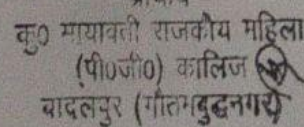 कु० मायावती राजकीय महिला
(पी०जी०) कालिज
बादलपुर (गौतमबुद्धनगर)